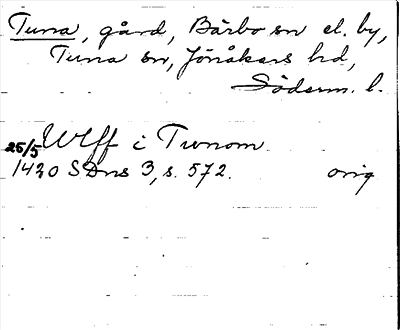 Tuna, gård, Bärbo sn el. by,
Tuna sn, Jönåkers hd,
Söderm. l.
25/5 Ulff i Tunom
1420 SDns 3, s. 572. orig